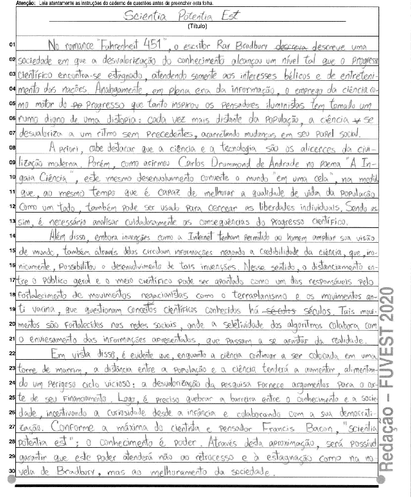 Atenção: Leia atentamente as instruções do caderno de questões antes de preencher esta folha.
Scientia Potentia Est
(Título)
01 No romance "Fahrenheit 451", o escritor Ray Bradbury descreve uma
02 sociedade em que a desvalorização do conhecimento alcançou um nível tal que o progresso
03 científico encontra-se estagnado, atendendo somente aos interesses bélicos e de entreteni-
04 mento das nações. Analogamente, em plena era da informação, o emprego da ciência co-
05 mo motor de progresso que tanto inspirou os pensadores iluministas tem tomado um
06 rumo digno de uma distopia: cada vez mais distante da população, a ciência se
07 desvaloriza a um ritmo sem precedentes, acarretando mudanças em seu papel social.
08 A priori, cabe destacar que a ciência e a tecnologia são os alicerces da civi-
09 lização moderna. Porém, como afirmou Carlos Drummond de Andrade no poema "A In-
10 gaia Ciência", este mesmo desenvolvimento converte o mundo "em uma cela", na medida
11 que, ao mesmo tempo que é capaz de melhorar a qualidade de vida da população
12 como um todo, também pode ser usado para cercear as liberdades individuais. Sendo as-
13 sim, é necessário analisar cuidadosamente as consequências do progresso científico.
14 Além disso, embora invenções como a Internet tenham permitido ao homem ampliar sua visão
15 de mundo, também através delas circulam informações negando a credibilidade da ciência, que, iro-
16 nicamente, possibilitou o desenvolvimento de tais invenções. Nesse sentido, o distanciamento en-
17 tre o público geral e o meio científico pode ser apontado como um dos responsáveis pelo
18 fortalecimento de movimentos negacionistas como o terraplanismo e os movimentos an-
19 ti vacina, que questionam conceitos científicos conhecidos há séculos. Tais movi-
20 mentos são fortalecidos nas redes sociais, onde a seletividade dos algoritmos colabora com
21 o enviesamento das informações apresentadas, que passam a se afastar da realidade.
22 Em vista disso, é evidente que, enquanto a ciência continuar a ser colocada em uma
23 torre de marfim, a distância entre a população e a ciência tenderá a aumentar, alimentan-
24 do um perigoso ciclo vicioso: a desvalorização da pesquisa fornece argumentos para o cor-
25 te de seu financiamento. Logo, é preciso quebrar a barreira entre o conhecimento e a socie-
26 dade, incentivando a curiosidade desde a infância e colaborando com a sua democrati-
27 zação. Conforme a máxima do cientista e pensador Francis Bacon, "scientia
28 potentia est": o conhecimento é poder. Através desta aproximação, será possível
29 garantir que este poder atenderá não ao retrocesso e à estagnação como na no-
30 vela de Bradbury, mas ao melhoramento da sociedade.
Redação – FUVEST 2020